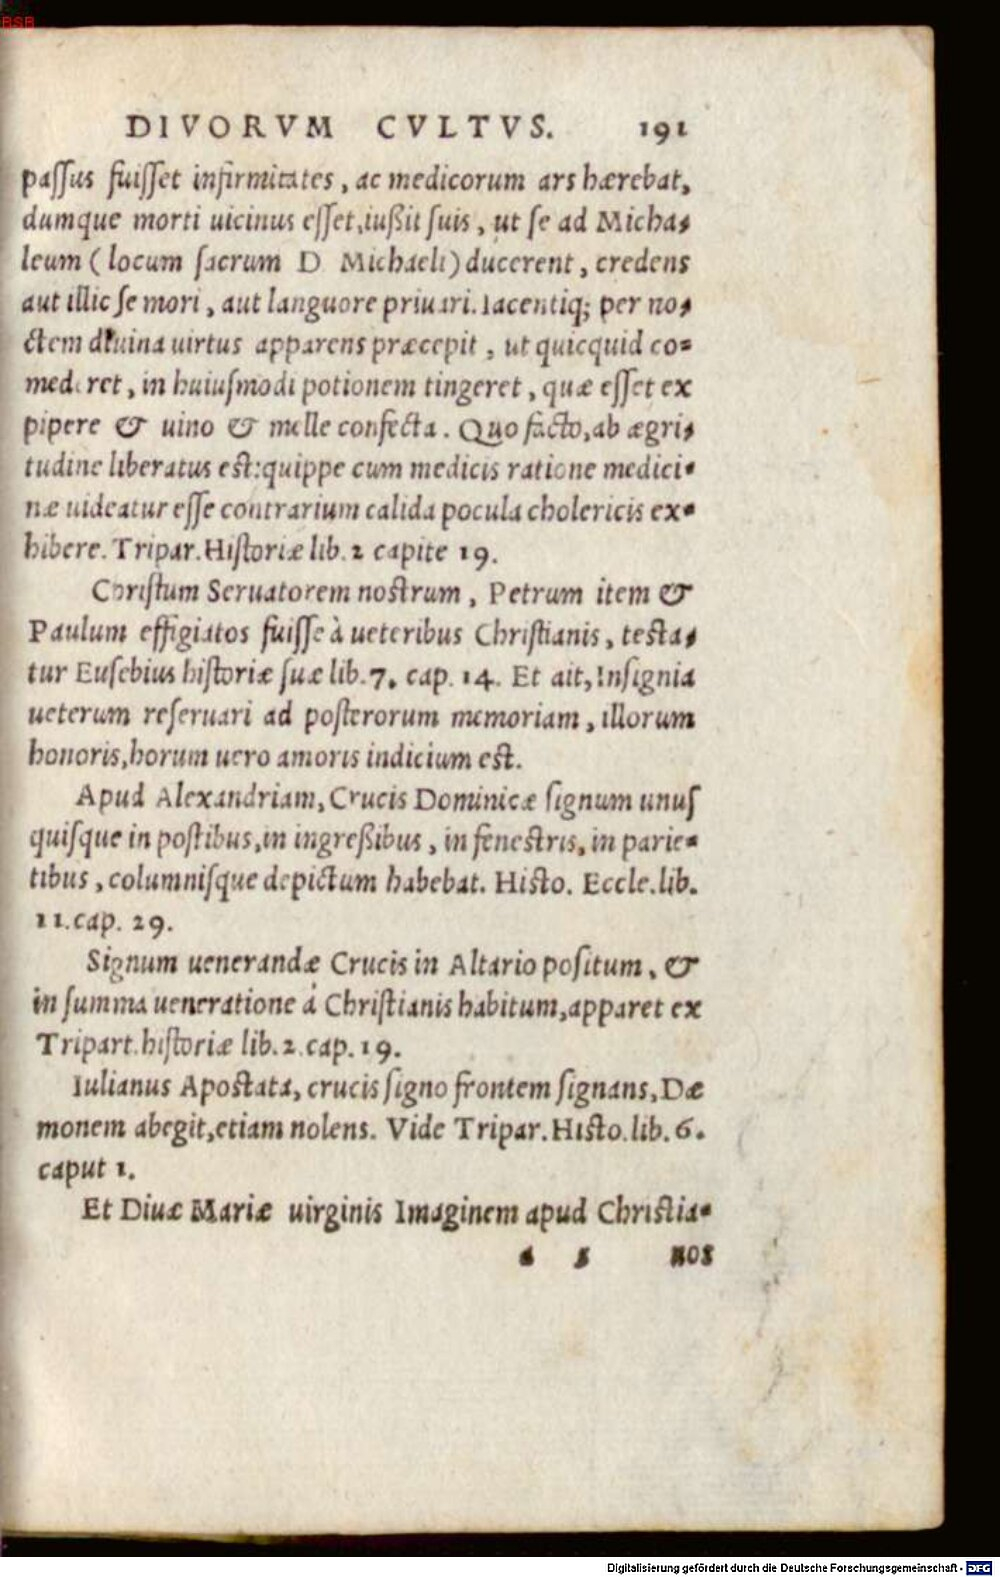 BSB
DIVORVM CVLTVS. 191
paſſus fuiſſet infirmitates, ac medicorum ars hærebat,
dumque morti uicinus eſſet, iußit ſuis, ut ſe ad Micha-
leum (locum ſacrum D Michaeli) ducerent, credens
aut illic ſe mori, aut languore priuari. Iacentiq; per no-
ctem diuina uirtus apparens præcepit, ut quicquid co-
mederet, in huiuſmodi potionem tingeret, quæ eſſet ex
pipere & uino & melle confecta. Quo facto, ab ægri-
tudine liberatus eſt: quippe cum medicis ratione medici-
næ uideatur eſſe contrarium calida pocula cholericis ex-
hibere. Tripar. Hiſtoriæ lib. 2 capite 19.
Chriſtum Seruatorem noſtrum, Petrum item &
Paulum effigiatos fuiſſe à ueteribus Chriſtianis, teſta-
tur Euſebius hiſtoriæ ſuæ lib. 7. cap. 14. Et ait, Inſignia
ueterum reſeruari ad poſterorum memoriam, illorum
honoris, horum uero amoris indicium eſt.
Apud Alexandriam, Crucis Dominicæ ſignum unuſ
quiſque in poſtibus, in ingreßibus, in feneſtris, in parie-
tibus, columniſque depictum habebat. Hiſto. Eccle. lib.
11. cap. 29.
Signum uenerandæ Crucis in Altario poſitum, &
in ſumma ueneratione à Chriſtianis habitum, apparet ex
Tripart. hiſtoriæ lib. 2. cap. 19.
Iulianus Apoſtata, crucis ſigno frontem ſignans, Dæ
monem abegit, etiam nolens. Vide Tripar. Hiſto. lib. 6.
caput 1.
Et Diuæ Mariæ uirginis Imaginem apud Chriſtia-
nos
Digitalisierung gefördert durch die Deutsche Forschungsgemeinschaft - DFG